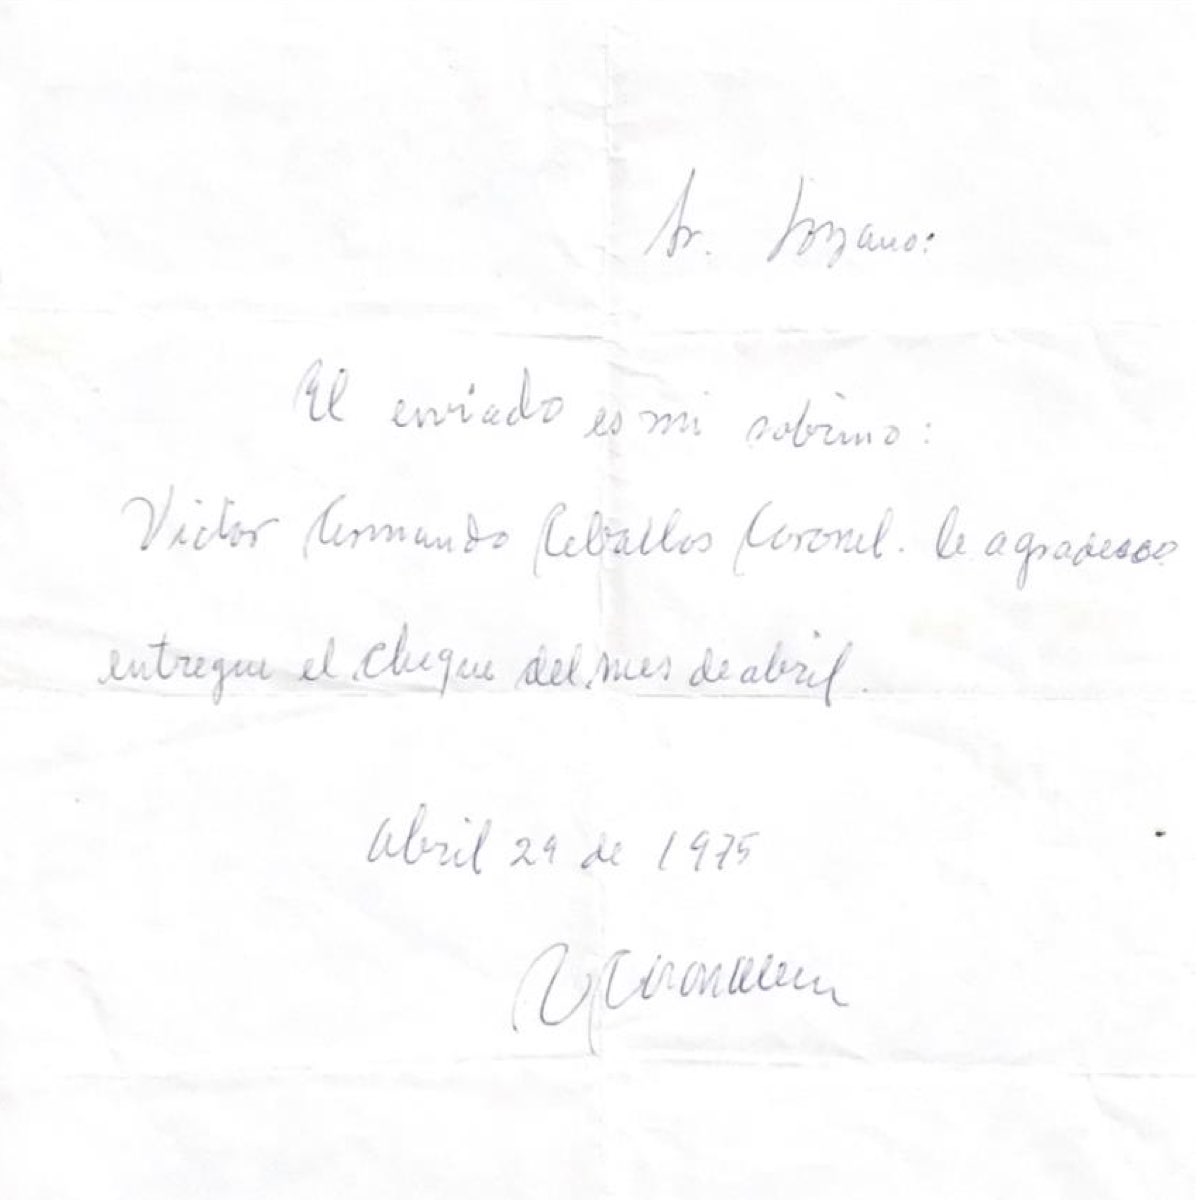 Sr. Lozano:
El enviado es mi sobrino:
Victor Armando Ceballos Coronel. le agradesco
entregue el cheque del mes de abril.
Abril 29 de 1975